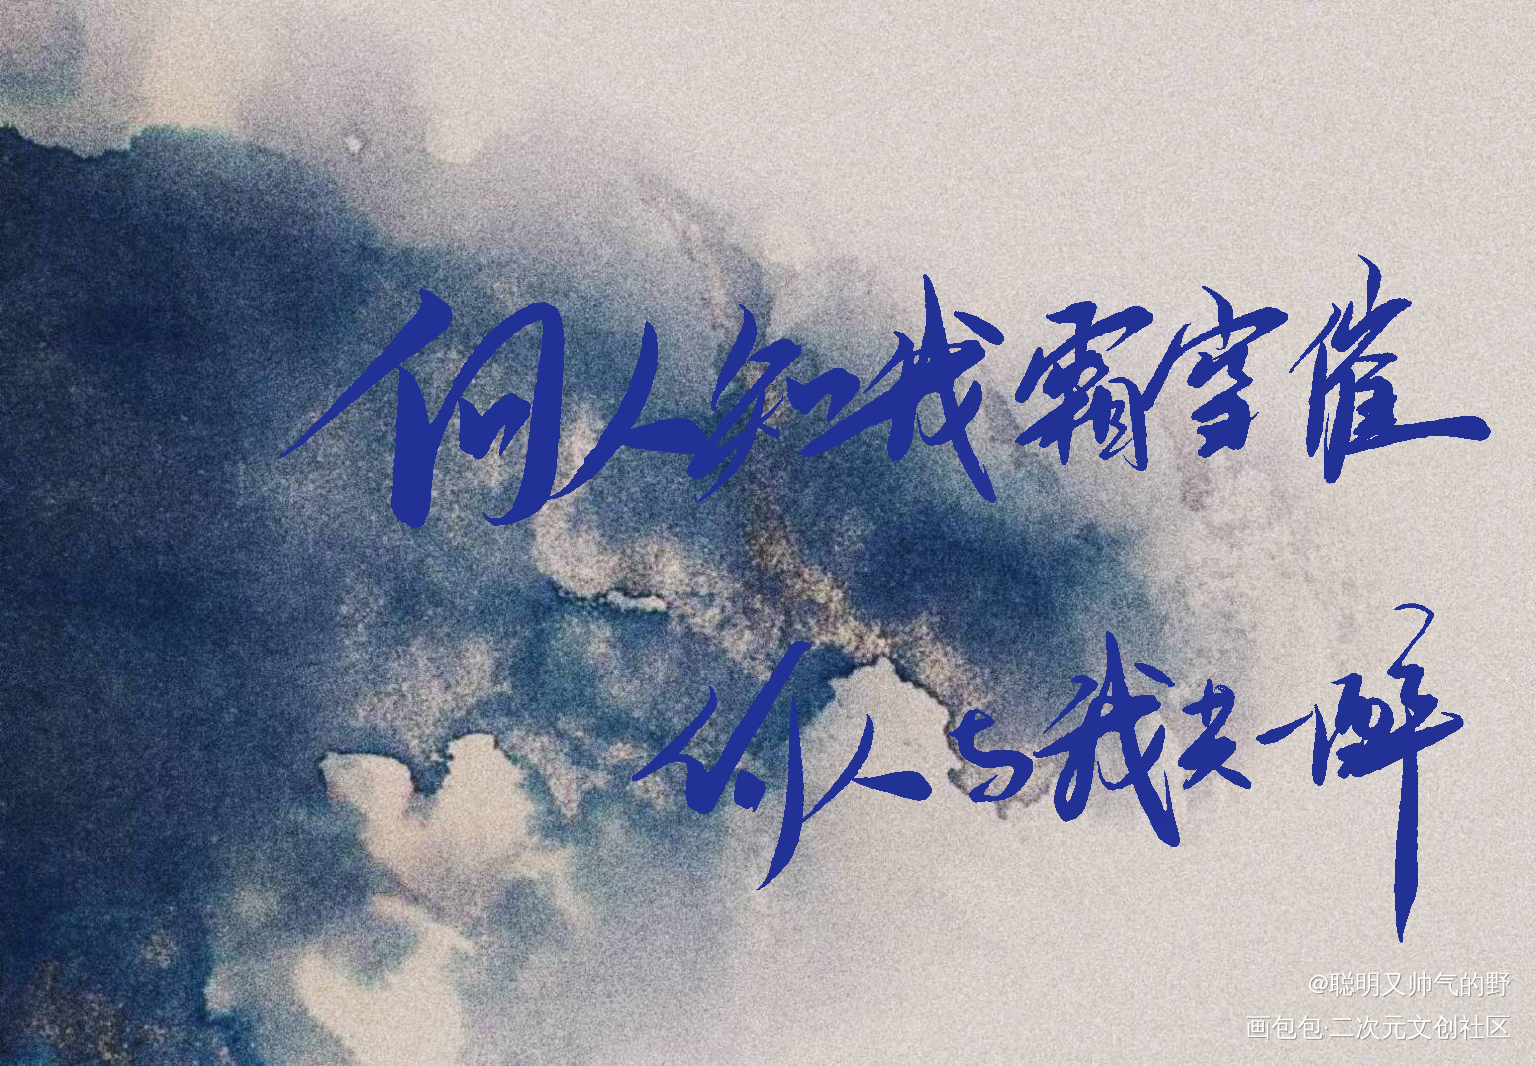 何人知我霜雪催
何人与我共一醉
@聪明又帅气的野
画包包·二次元文创社区